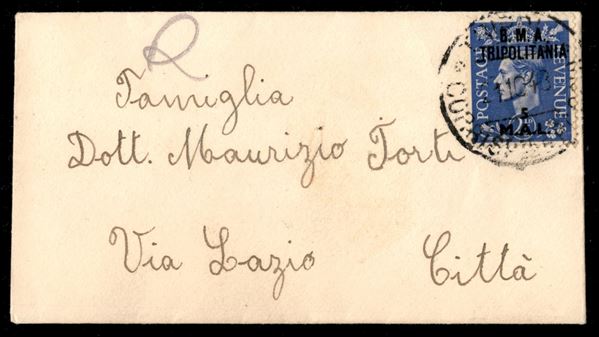 B. M. A.
TRIPOLITANIA
POSTAGE REVENUE
5
M.A.L.
Famiglia
Dott. Maurizio Torti
Via Lazio Città